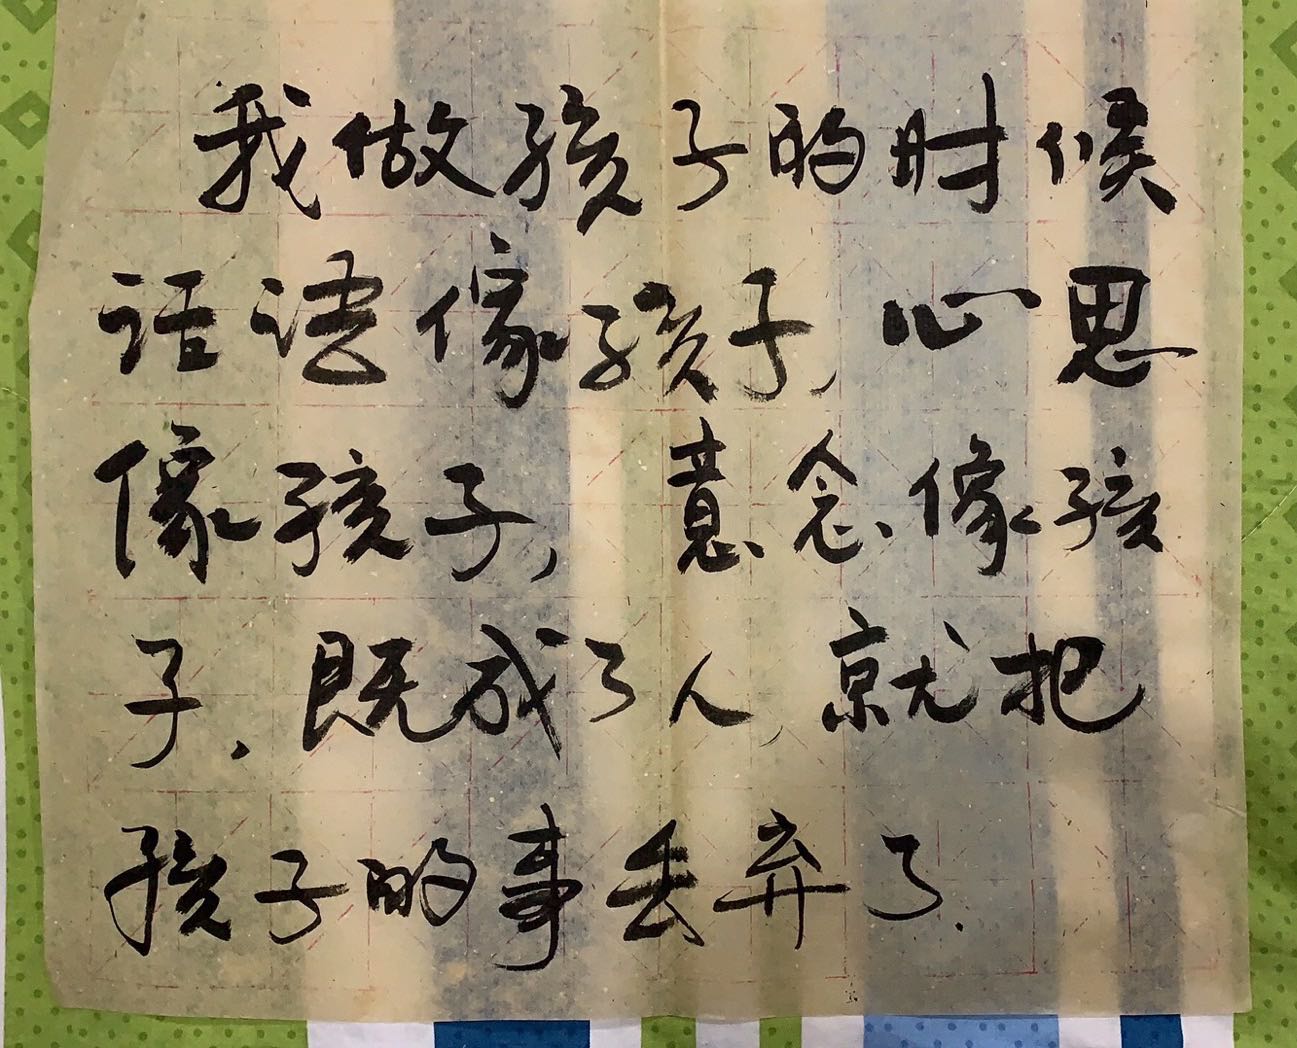 我做孩子的时候
话语像孩子,心思
像孩子,意念像孩
子.既成了人,就把
孩子的事丢弃了.